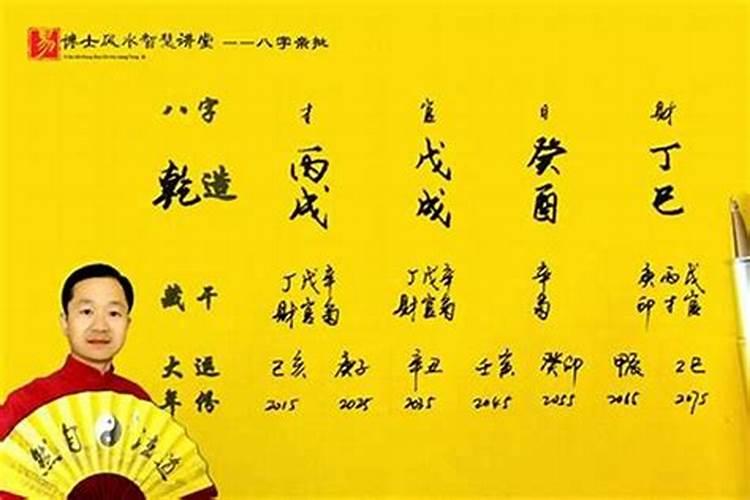 易 博士风水智慧讲堂 ——八字亲批
八字 才 官 日 财
丙 戊 癸 丁
乾造
戌 戌 酉 巳
丁戊辛 丁戊辛 辛 庚丙戊
藏干
财官枭 财官枭 枭 印才官
大运 己亥 庚子 辛丑 壬寅 癸卯 甲辰 乙巳
年 2015 2025 2035 2045 2055 2065 2075
然自法道